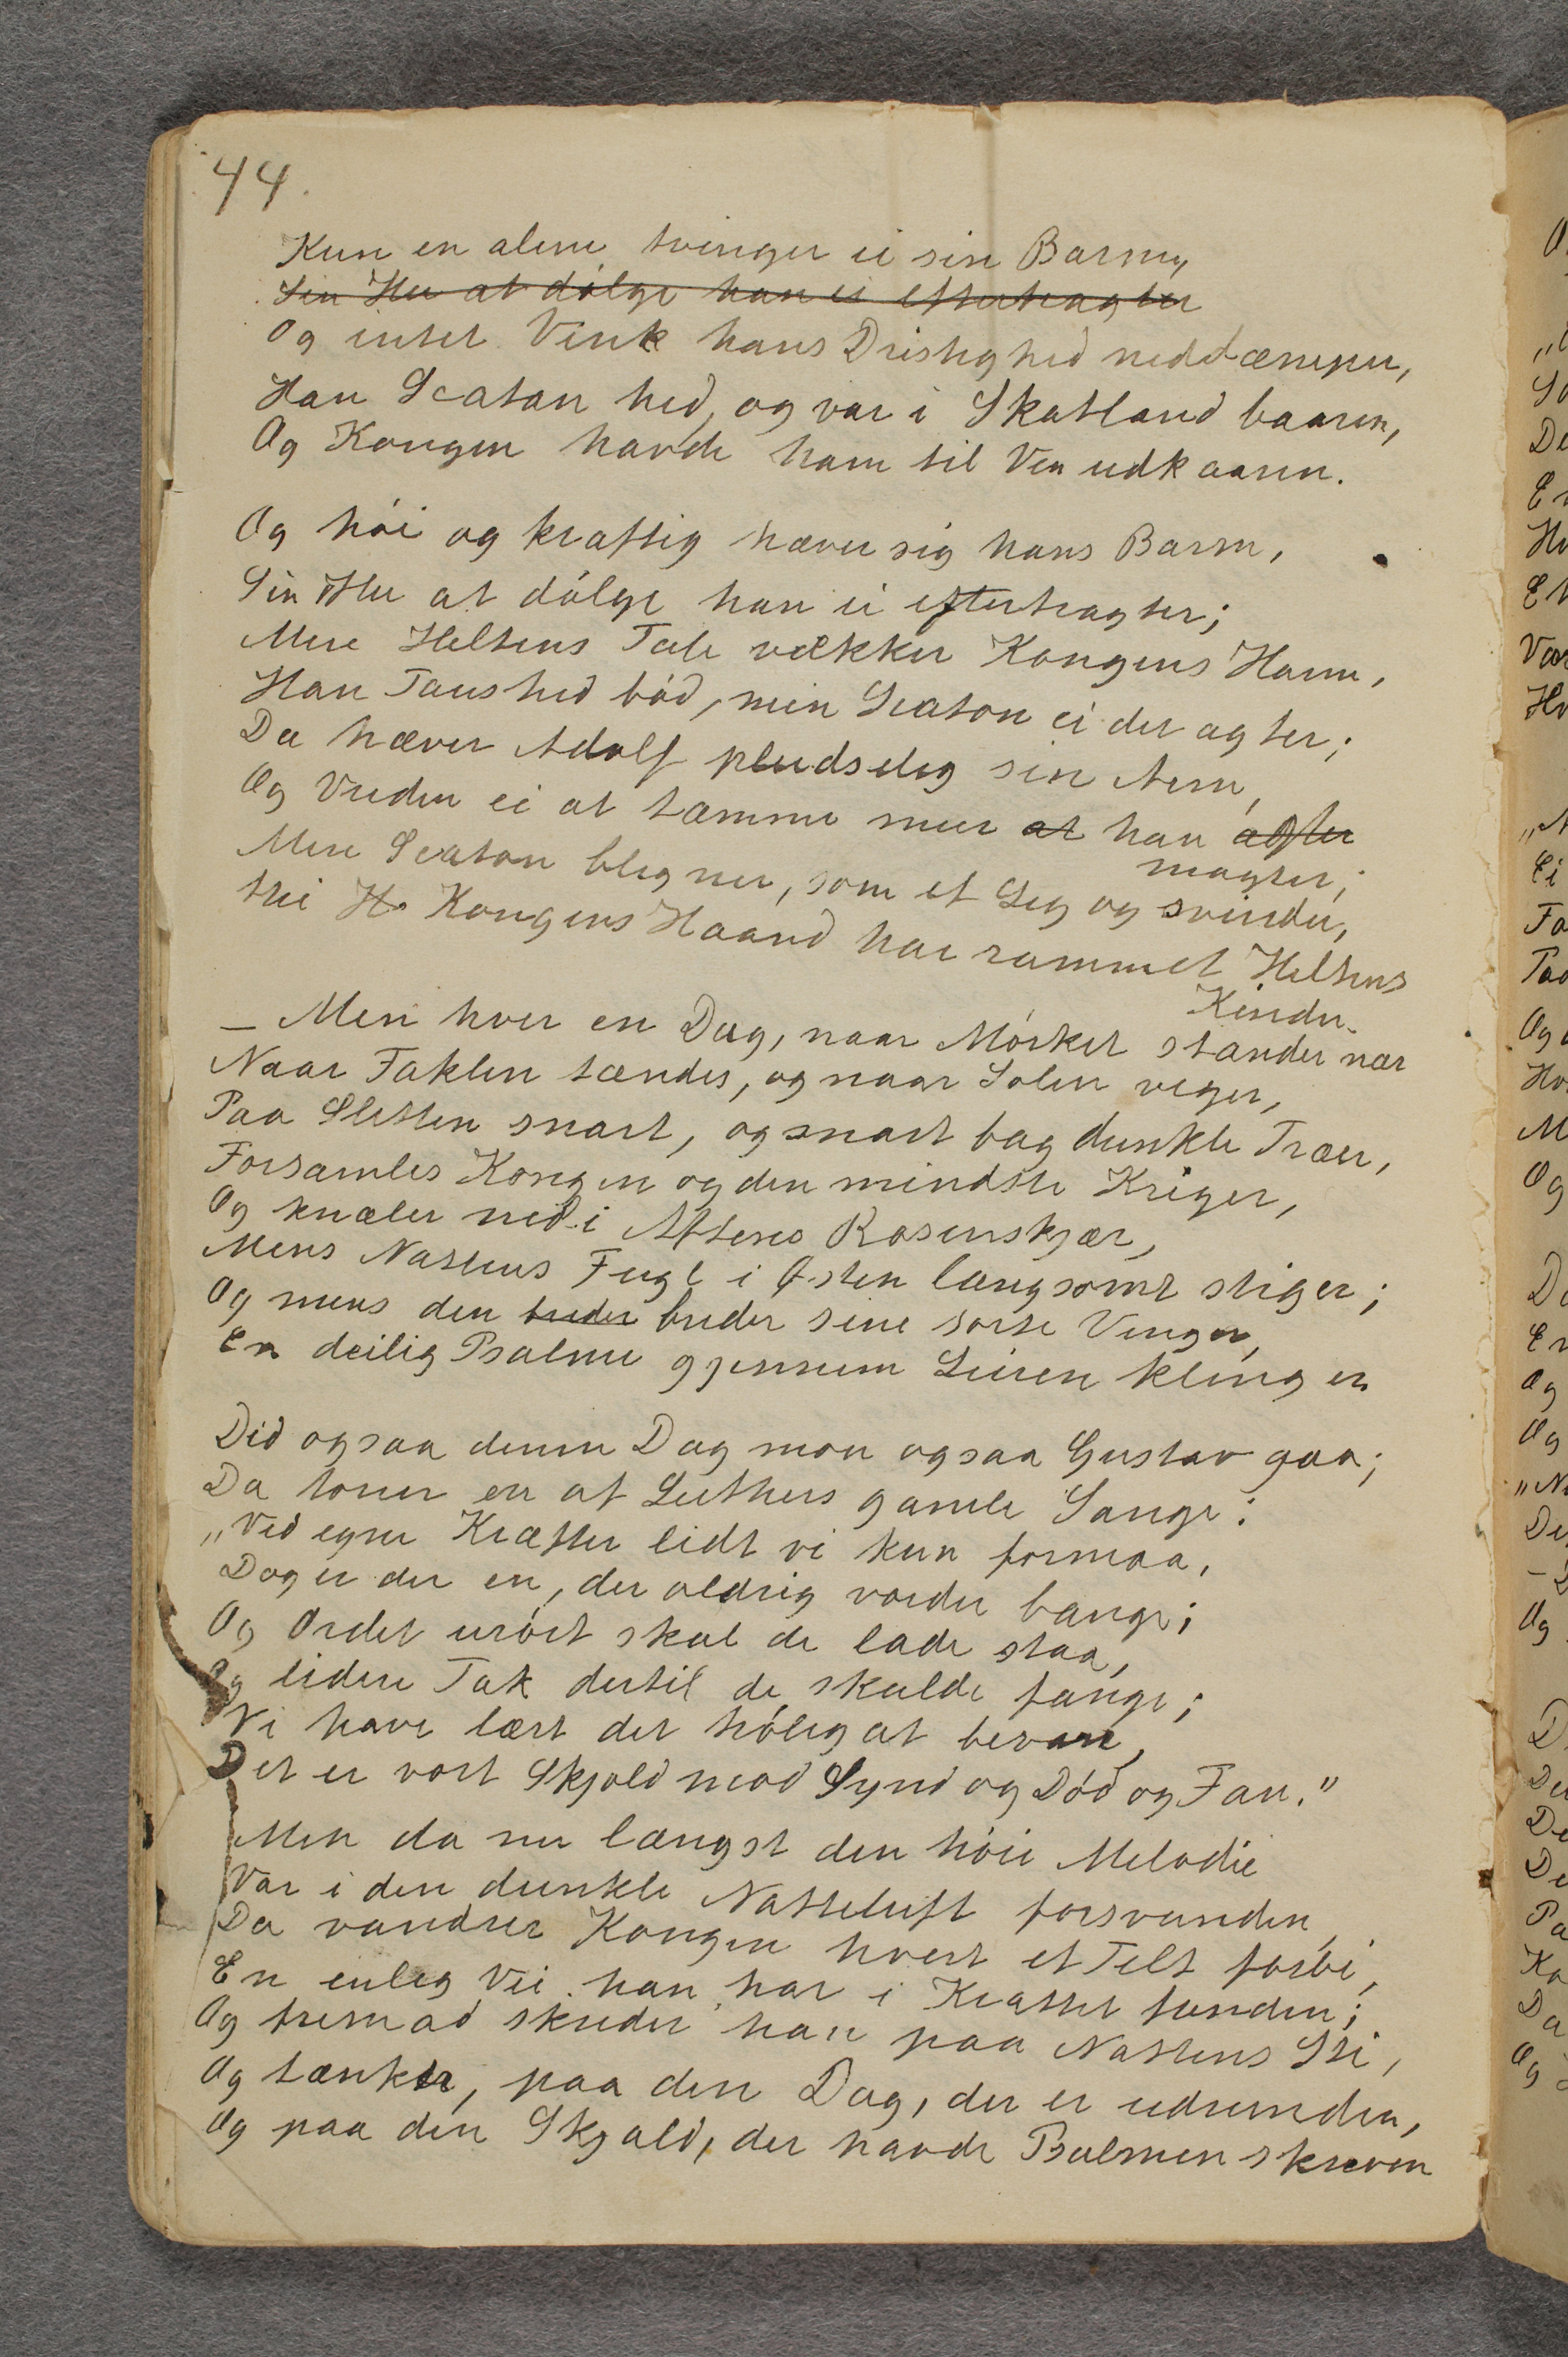 44.
Kun en alene tvinger ei sin Barm,
Sin Hu at dölge han ei eftertragter
Og intet Vink hans Dristighed neddæmper,
Han Seaton hed, og var i Skotland baaren,
Og Kongen havde ham til Ven udkaaren.
Og höi og kraftig hæver sig hans Barm,
Sin Hu at dölge han ei eftertragter;
Mere Heltens Tale vækker Kongens Harm,
Han Taushed böd, men Seaton ei det agter;
Da hæver Adolf pludselig sin Arm,
Og Vreden ei at tæmme meer at han agter
magter;
Mere Seaton blegner, som et Lig og svinder,
thi H. Kongens Haand har rammet Heltens
Kinder.
– Men hver en Dag, naar Mörket stander nær
Naar Faklen tændes, og naar Solen viger,
Paa Sletten snart, og snart bag dunkle Træer,
Forsamles Kongen og den mindste Kriger,
Og knæler ned i Aftenes Rosenskjær,
Mens Nattens Fugl i Østen langsomt stiger;
Og mens den breder breder sine sorte Vinger,
En deilig Psalme gjennem Leiren klinger
Did ogsaa denne Dag mon ogsaa Gustav gaa;
Da toner en af Luthers gamle Sange:
"Ved egne Kræfter lidt vi kun formaa,
Dog er der en, der aldrig vorder bange;
Og Ordet urört skal de lade staa,
Og liden Tak dertil de skulde fange;
Vi have lært det trölig at bevare,
Det er vort Skjold mod Synd og Död og Fare."
Men da nu længst den höie Melodie
Var i den dunkle Natteluft forsvunden,
Da vandrer Kongen hvert et Telt forbi,
En enlig Vei han har i Krattet funden;
Og fremad skrider han paa Nattens Sti,
Og tænker, paa den Dag, der er udrunden,
Og paa den Skjald, der havde Psalmen skreven